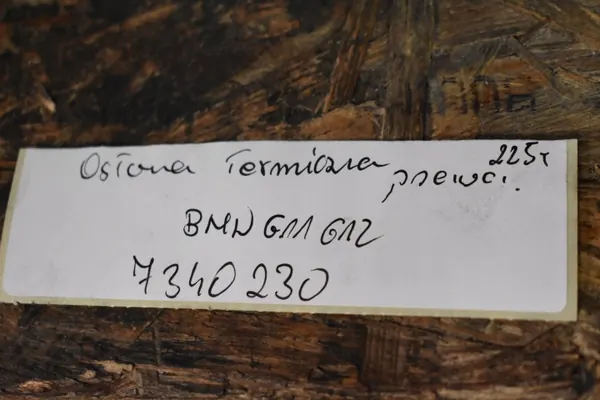 Osłona Termiczna prawa.
225,-
BMW G11 G12
7340230